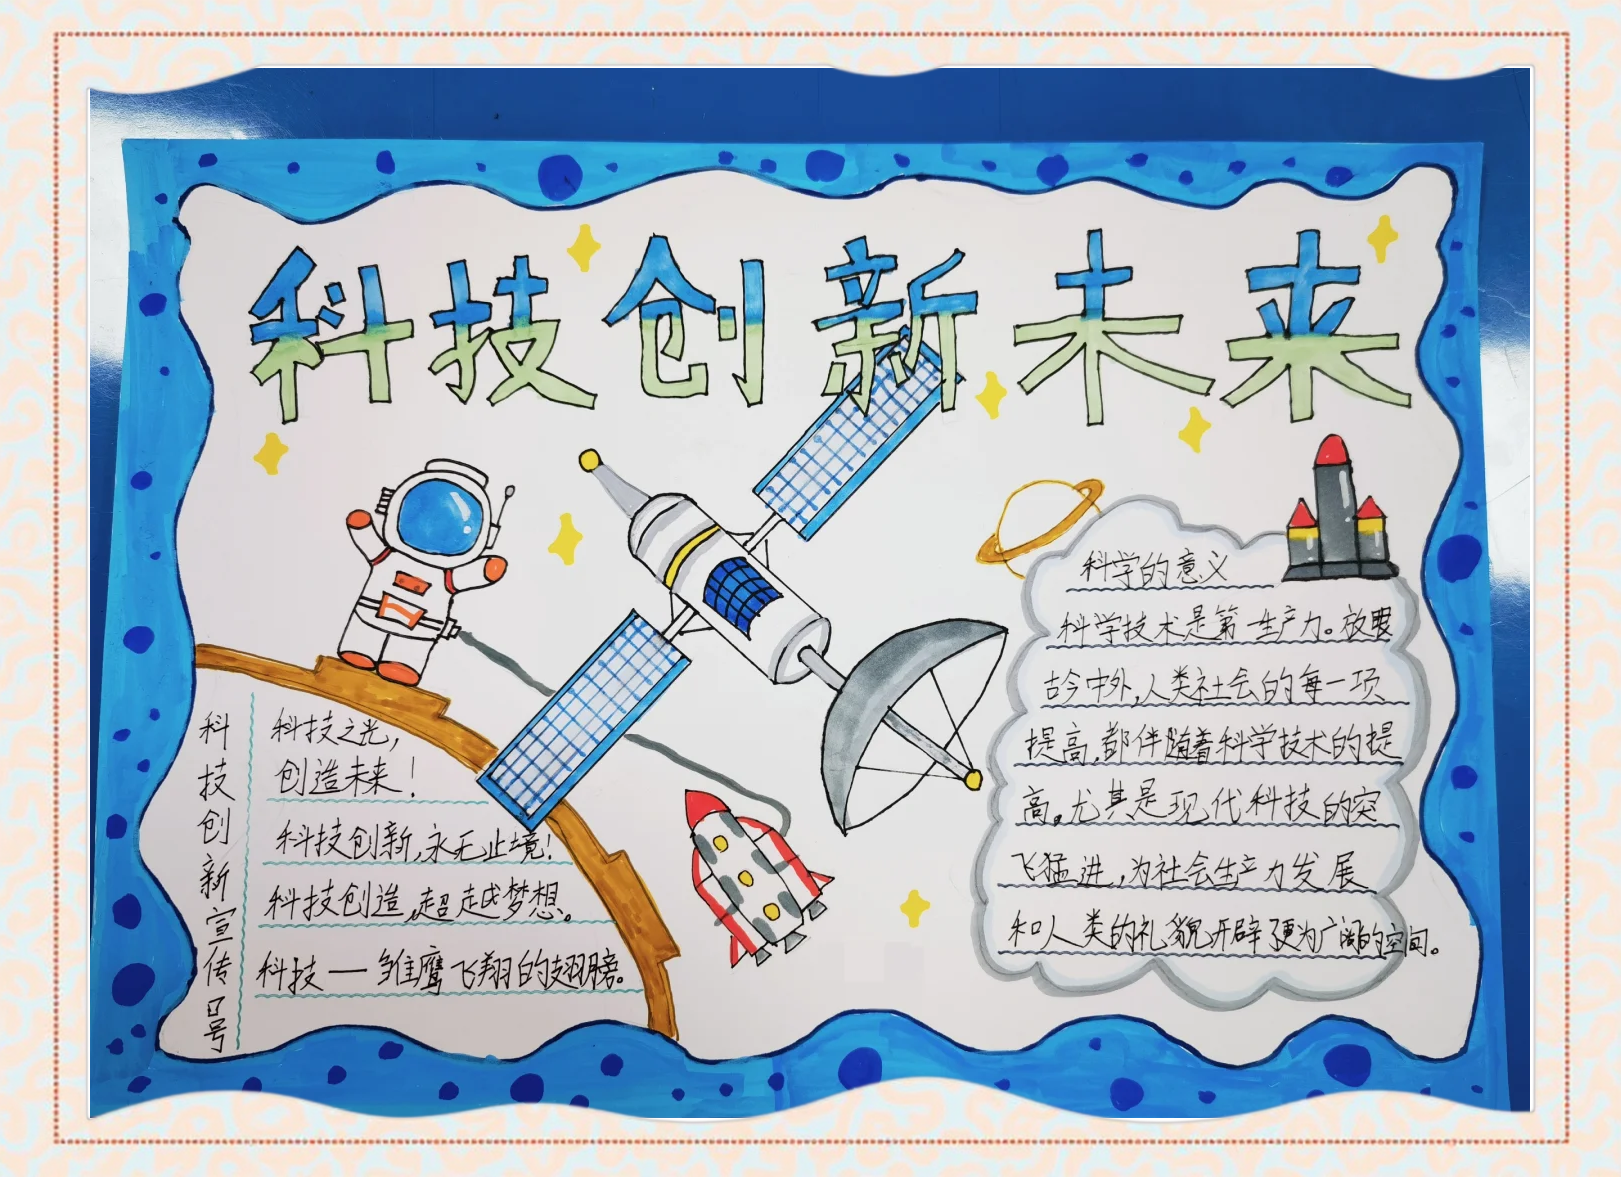 科技创新未来
科技创新宣传口号
科技之光,
创造未来!
科技创新,永无止境!
科技创造,超越梦想。
科技一雏鹰飞翔的翅膀。
科学的意义
科学技术是第一生产力。放眼
古今中外,人类社会的每一项
提高,都伴随着科学技术的提
高。尤其是现代科技的突
飞猛进,为社会生产力发展
和人类的礼貌开辟更为广阔的空间。